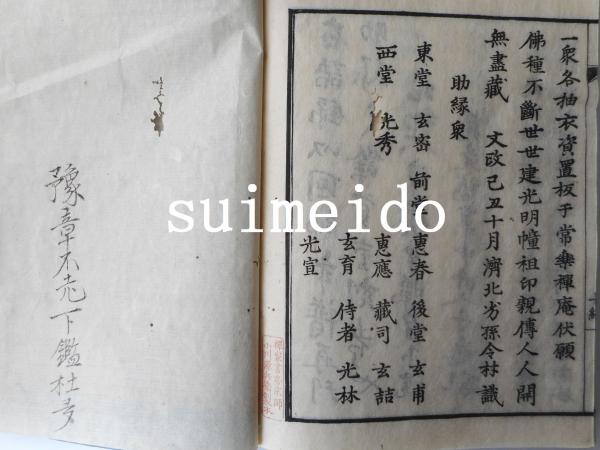 一衆各抽衣資置板于常樂禪庵伏願
佛種不斷世世建光明幢祖印親傳人人開
無盡藏　文政己丑十月濟北芳孫令材識
助縁衆
東堂　玄密　前堂　惠春　後堂　玄甫
西堂　光秀　惠應　藏司　玄喆
玄育　侍者　光林
光宣
suimeido
豫章不老下鑑杜多